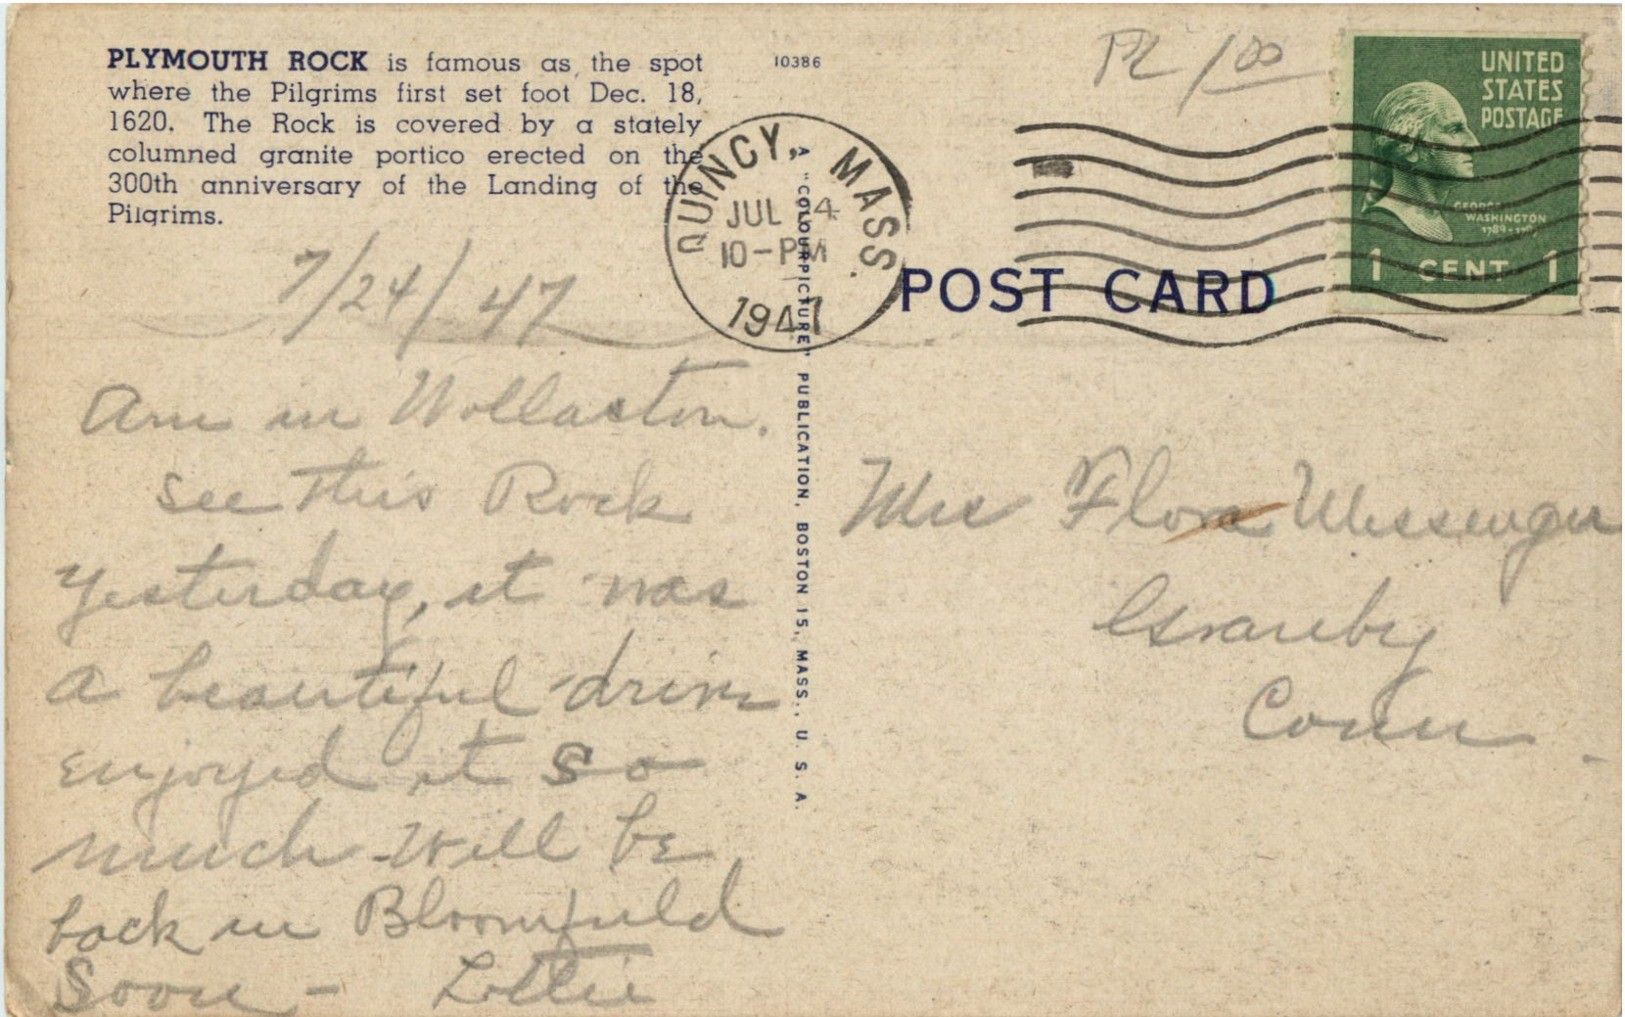 PLYMOUTH ROCK is famous as the spot
where the Pilgrims first set foot Dec. 18,
1620. The Rock is covered by a stately
columned granite portico erected on the
300th anniversary of the Landing of the
Pilgrims.
10386
PL 1.00
UNITED
STATES
POSTAGE
GEORGE
WASHINGTON
1 CENT 1
QUINCY, MASS.
JUL 24
10-PM
1947
POST CARD
A "COLOURPICTURE" PUBLICATION, BOSTON 15, MASS., U. S. A.
7/24/47
Am in Wollaston.
See this Rock
yesterday, it was
a beautiful drive
enjoyed it so
much will be
back in Bloomfield
Soon - Lottie
Mrs Flora Messenger
Granby
Conn